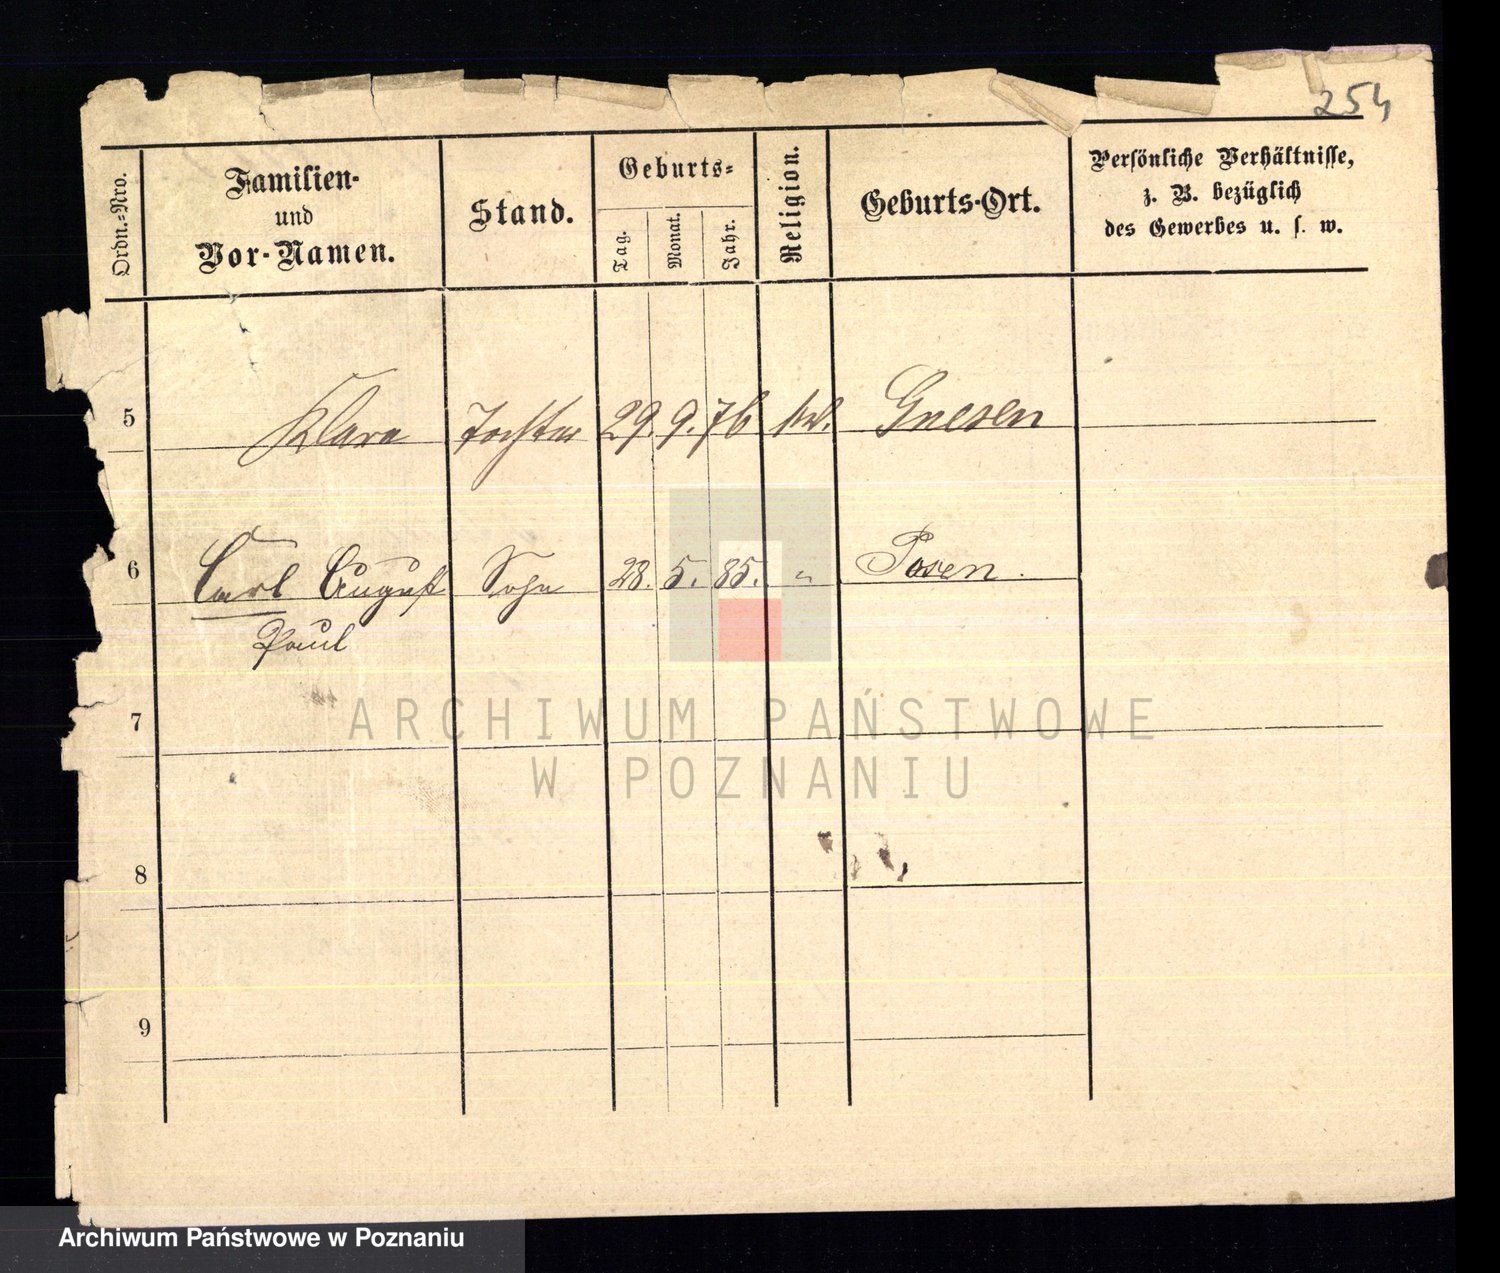 254
Ordn.-Nro.
Familien-
und
Vor-Namen.
Stand.
Geburts-
Tag.
Monat.
Jahr.
Religion.
Geburts-Ort.
Persönliche Verhältnisse,
z. B. bezüglich
des Gewerbes u. s. w.
5 Klara Tochter 29. 9. 76 Gnesen
6 Carl August Sohn 28. 5. 85. " Posen.
Paul
7
8
9
ARCHIWUM PAŃSTWOWE
W POZNANIU
Archiwum Państwowe w Poznaniu